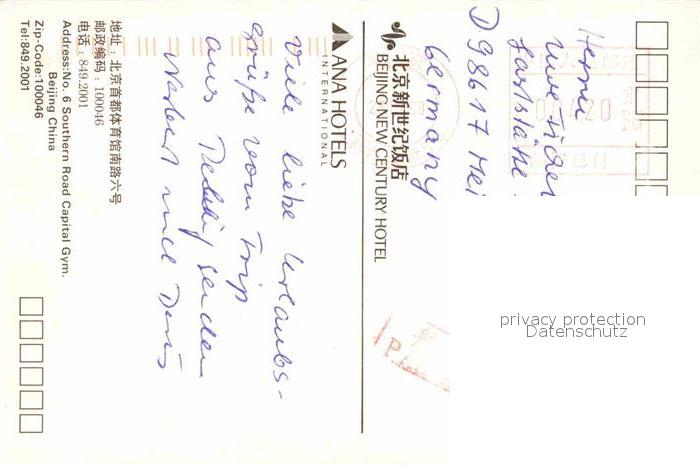 Viele liebe Urlaubs-
grüße vom Trip
aus Peking senden
Norbert und Doris
ANA HOTELS
INTERNATIONAL
北京新世纪饭店
BEIJING NEW CENTURY HOTEL
地址：北京首都体育馆南路六号
邮政编码：100046
电话：849.2001
Address:No. 6 Southern Road Capital Gym.
Beijing China
Zip-Code:100046
Tel:849.2001
Herrn
Uwe
Gaststätte
D 98617 Mei
Germany
privacy protection
Datenschutz